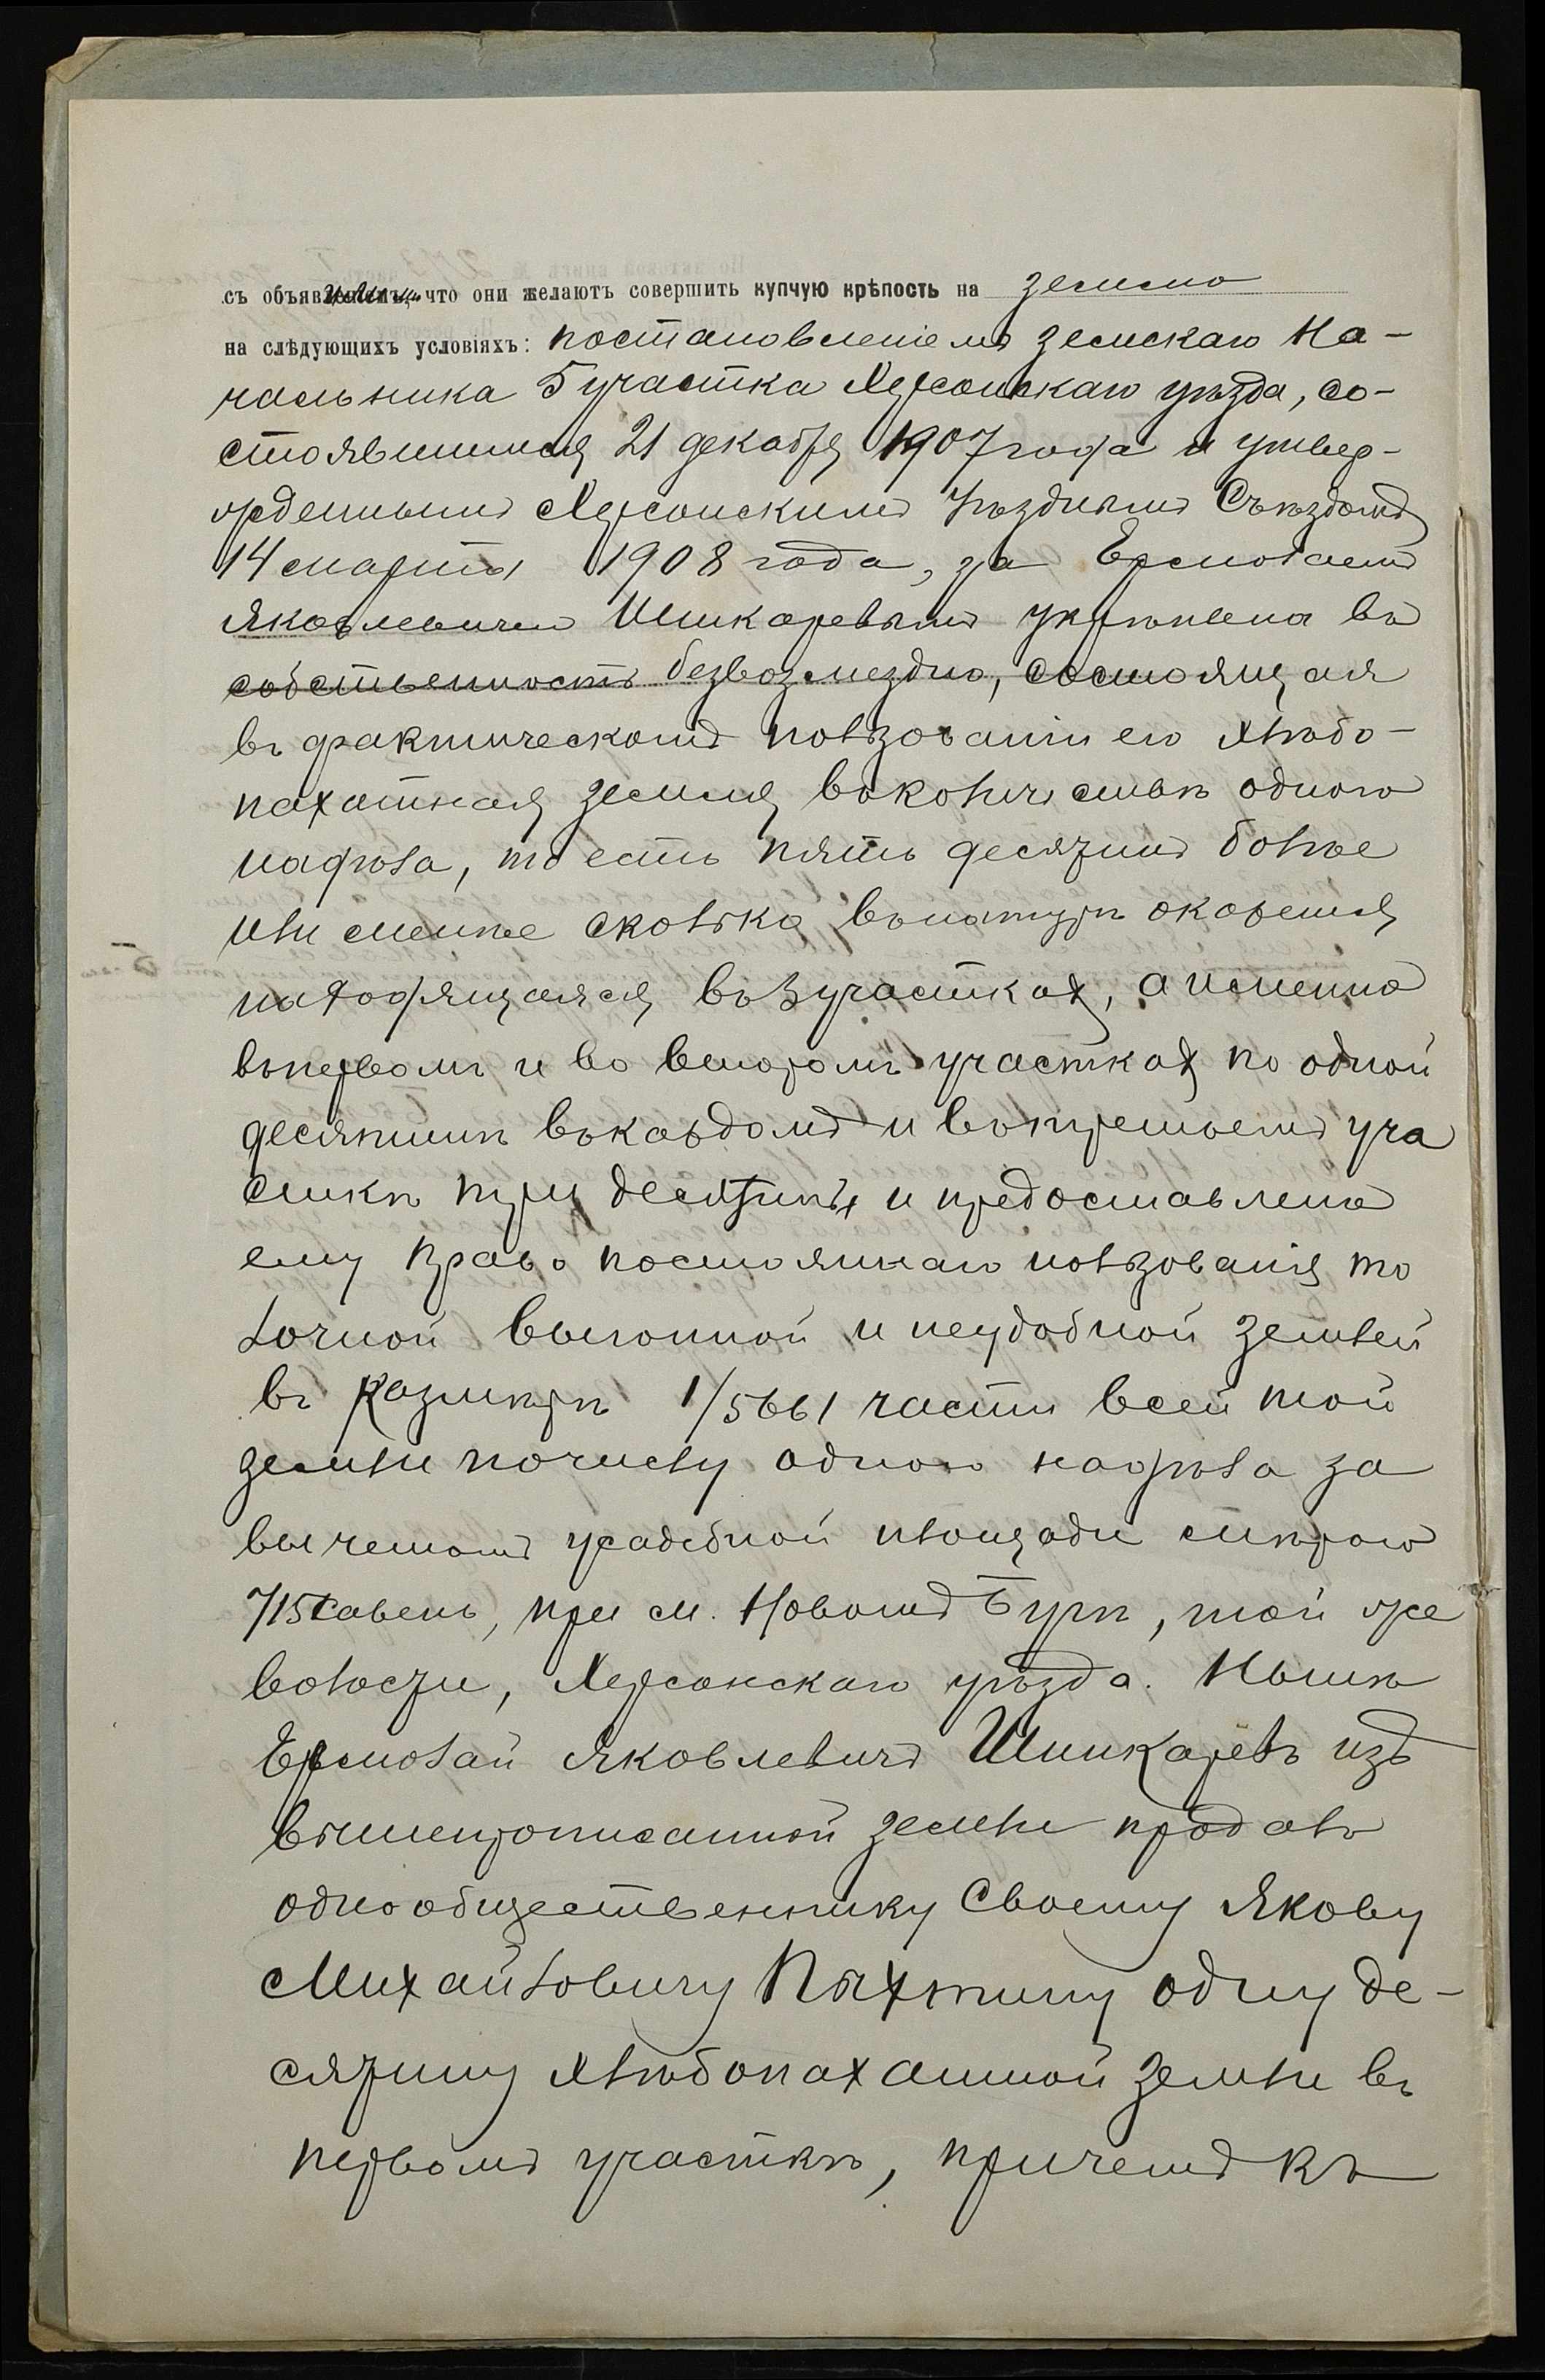 съ объявленіемъ, что они желаютъ совершить купчую крѣпость на землю
на слѣдующихъ условіяхъ: постановленіемъ земскаго На-
чальника 5 участка Херсонскаго уѣзда, со-
стоявшимся 21 декабря 1907 года и утвер-
жденнымъ Херсонскимъ Уѣзднымъ Съѣздомъ
14 марта 1908 года, за Ермолаемъ
Яковлевичемъ Шинкаревымъ укрѣплена въ
собственность безвозмездно, состоящая
въ фактическомъ пользованіи его хлѣбо-
пахатная земля въ количествѣ одного
надѣла, то есть пять десятинъ болѣе
или менѣе сколько въ натурѣ окажется
находящаяся въ 3 участкахъ, а именно
въ первомъ и во второмъ участках по одной
десятинѣ въ каждомъ и въ третьемъ уча
сткѣ три десятины и предоставлено
ему право постояннаго пользованія то
лочной выгонной и неудобной землей
въ размѣрѣ 1/5661 части всей той
земли по числу одного надѣла за
вычетомъ усадебной площади мѣрою
715 сажень, при м. Новомъ Бугѣ, той же
волости, Херсонскаго уѣзда. Нынѣ
Ермолай Яковлевичъ Шинкаревъ изъ
вышепрописанной земли продалъ
однообщественнику своему Якову
Михайловичу Пахтину одну де-
сятину хлѣбопахатной земли въ
первомъ участкѣ, причемъ къ